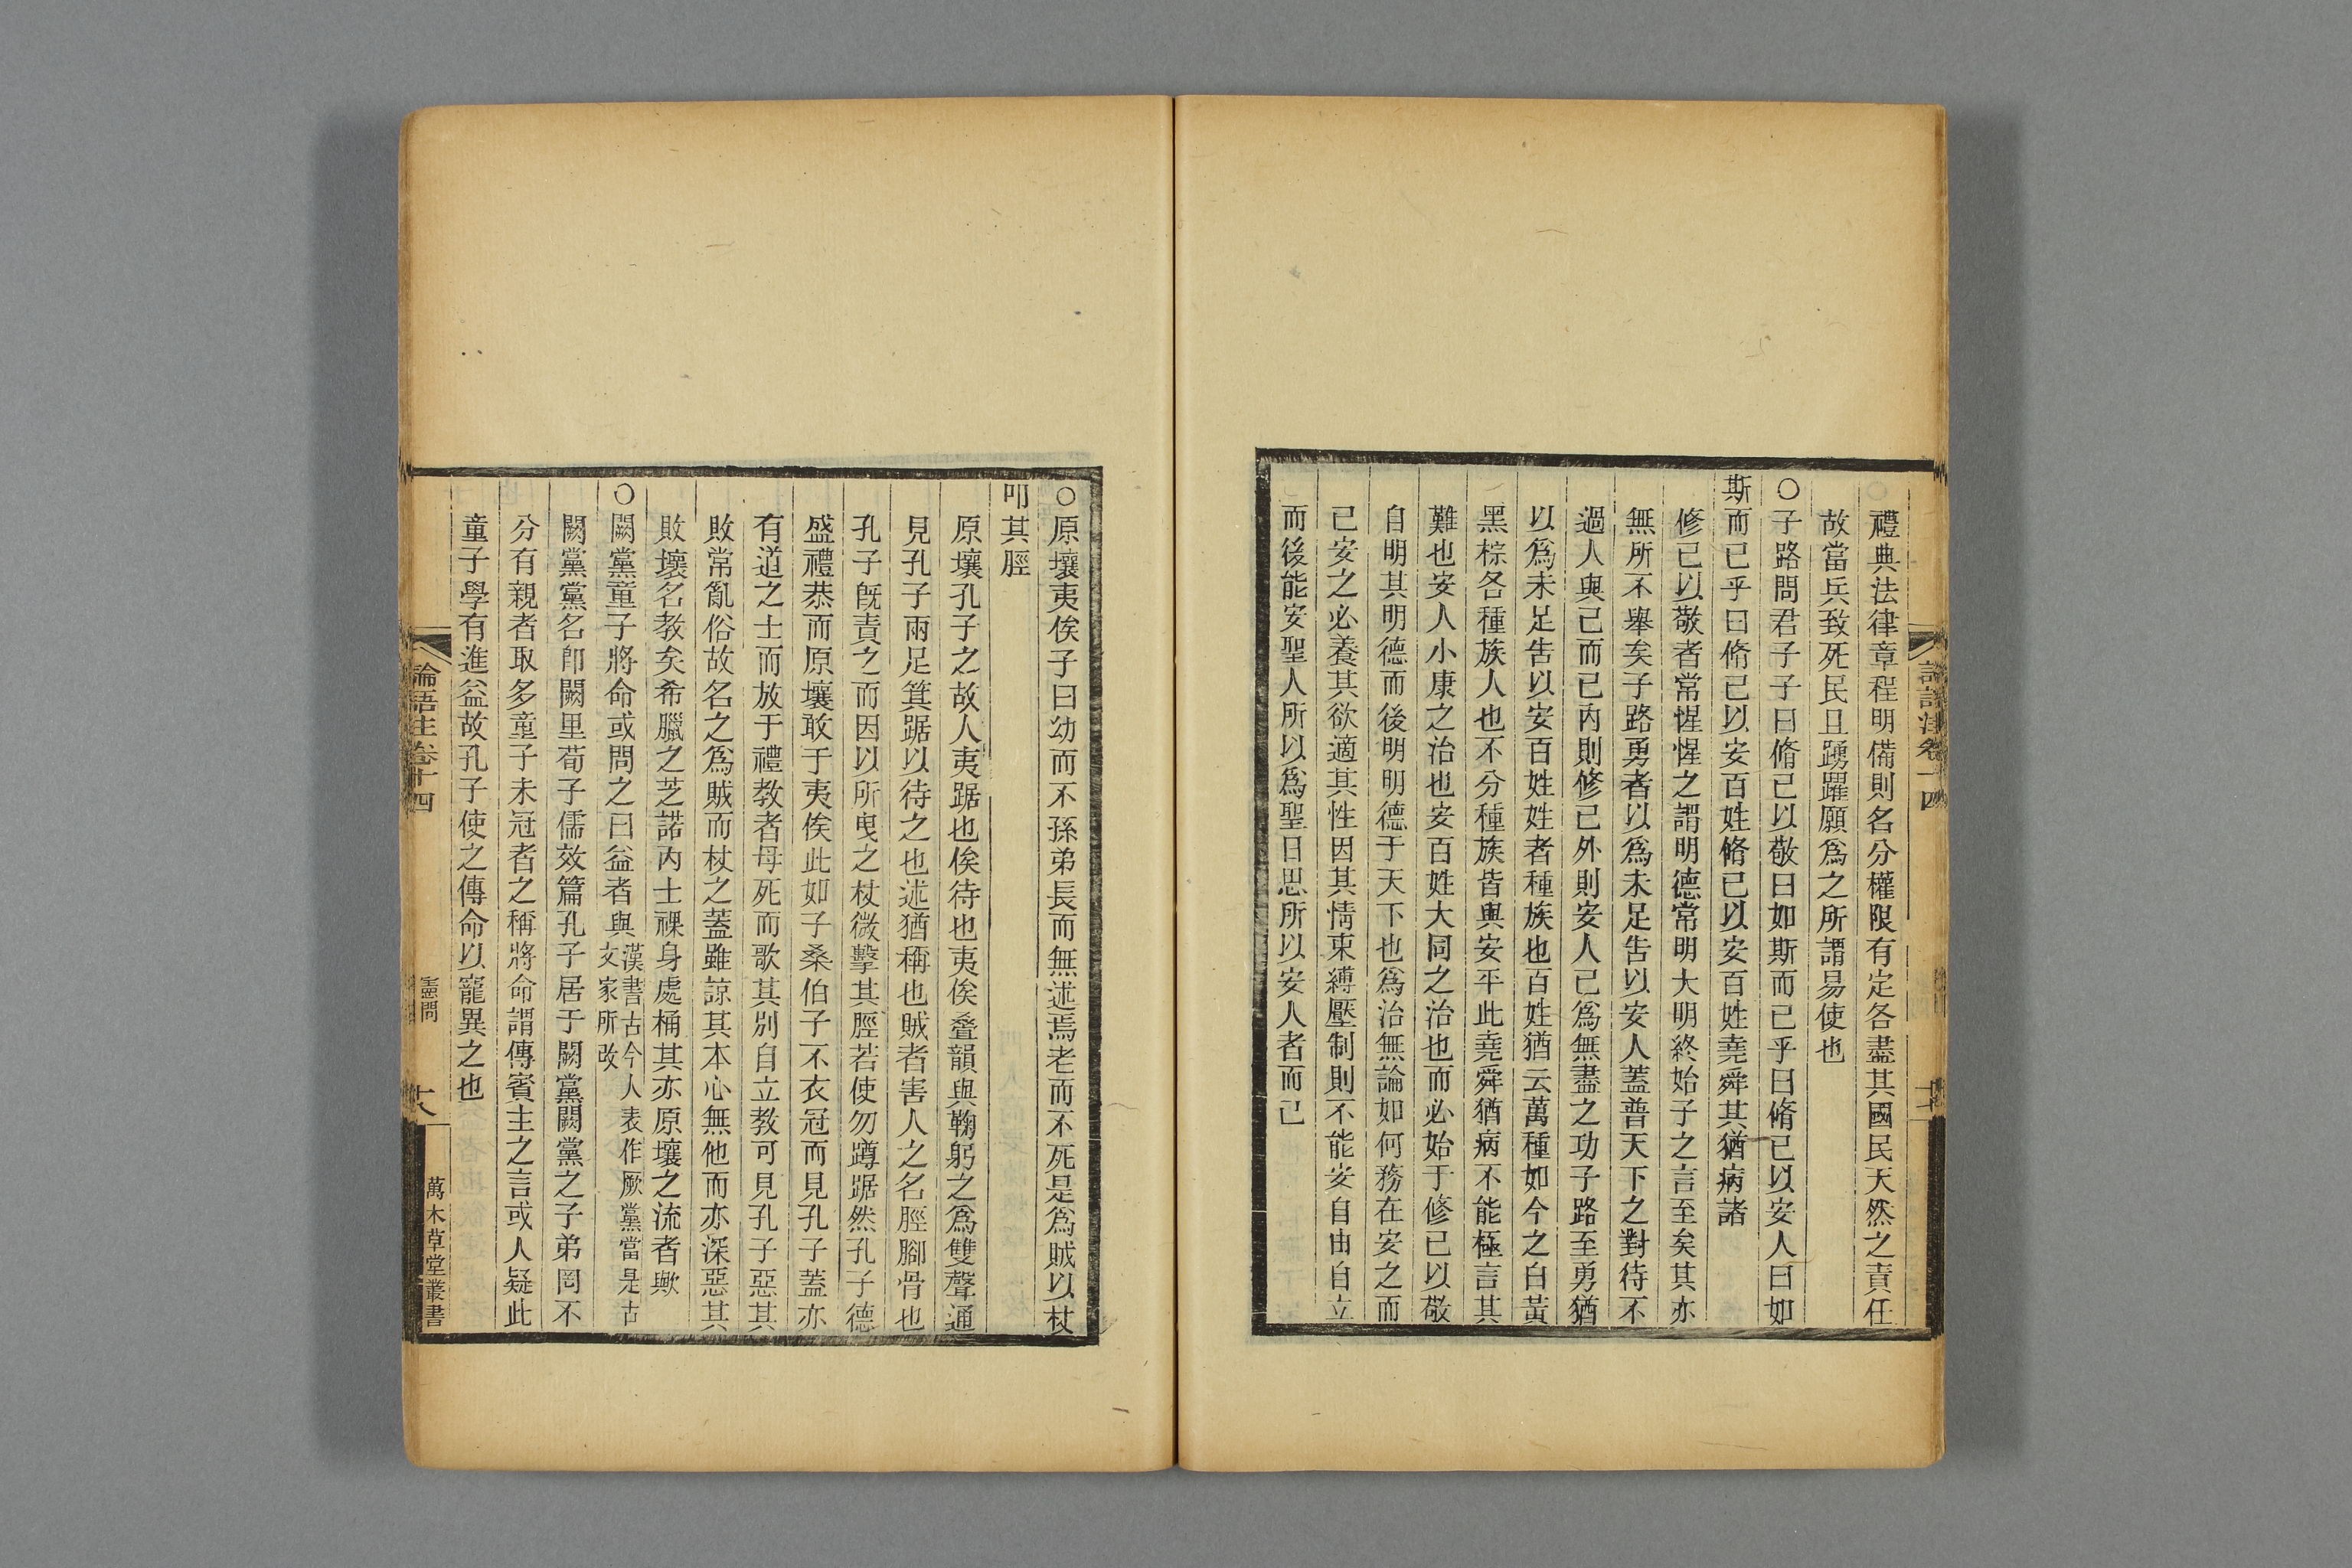 論語注卷十四
禮典法律章程明備則名分權限有定各盡其國民天然之責任
故當兵致死民且踴躍願爲之所謂易使也
○子路問君子子曰脩己以敬曰如斯而已乎曰脩己以安人曰如
斯而已乎曰脩己以安百姓脩己以安百姓堯舜其猶病諸
修己以敬者常惺惺之謂明德常明大明終始子之言至矣其亦
無所不舉矣子路勇者以爲未足告以安人蓋普天下之對待不
過人與己而已內則修己外則安人己爲無盡之功子路至勇猶
以爲未足告以安百姓姓者種族也百姓猶云萬種如今之白黃
黑棕各種族人也不分種族皆與安平此堯舜猶病不能極言其
難也安人小康之治也安百姓大同之治也而必始于修己以敬
自明其明德而後明明德于天下也爲治無論如何務在安之而
已安之必養其欲適其性因其情束縛壓制則不能安自由自立
而後能安聖人所以爲聖日思所以安人者而已
○原壤夷俟子曰幼而不孫弟長而無述焉老而不死是爲賊以杖
叩其脛
原壤孔子之故人夷踞也俟待也夷俟叠韻與鞠躬之爲雙聲通
見孔子兩足箕踞以待之也述猶稱也賊者害人之名脛腳骨也
孔子既責之而因以所曳之杖微擊其脛若使勿蹲踞然孔子德
盛禮恭而原壤敢于夷俟此如子桑伯子不衣冠而見孔子蓋亦
有道之士而放于禮教者母死而歌其別自立教可見孔子惡其
敗常亂俗故名之爲賊而杖之蓋雖諒其本心無他而亦深惡其
敗壞名教矣希臘之芝諾內士裸身處桶其亦原壤之流者歟
○闕黨童子將命或問之曰益者與漢書古今人表作厥黨當是古
文家所改
闕黨黨名卽闕里荀子儒效篇孔子居于闕黨闕黨之子弟罔不
分有親者取多童子未冠者之稱將命謂傳賓主之言或人疑此
童子學有進益故孔子使之傳命以寵異之也
論語注卷十四
憲問
十八
萬木草堂叢書